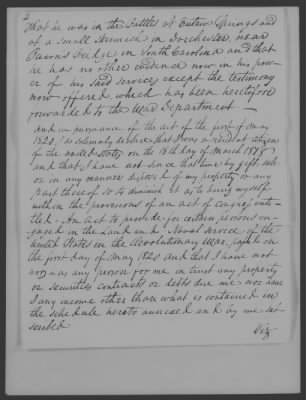 2
that he was in the Battles at Eutaw Springs and
at a Small Skirmish in Dorchester, near
Bacon's Bridge in South Carolina and that
he has no other evidence now in his pow-
er of his said services except the testimony
now offered which has been heretofore
forwarded to the War Department —
and in pursuance of the act of the first of may
1820, I solemnly declare that I was a resident citizen
of the united States on the 18th day of March 1818
and that I have not since that time by gift, sale
or in any manner disposed of my property or any
part thereof so to diminish it as to bring myself
within the provisions of an act of congress inti-
tled - An act to provide for certain persons en-
gaged in the Land and Naval Service of the
United States in the Revolutionary War, passed on
the first day of May 1820 and that I have not
nor has any person for me in trust any property
or securities contracts or debts due me nor have
I any income other than what is contained in
the schedule hereto annexed and by me sub-
scribed
Viz